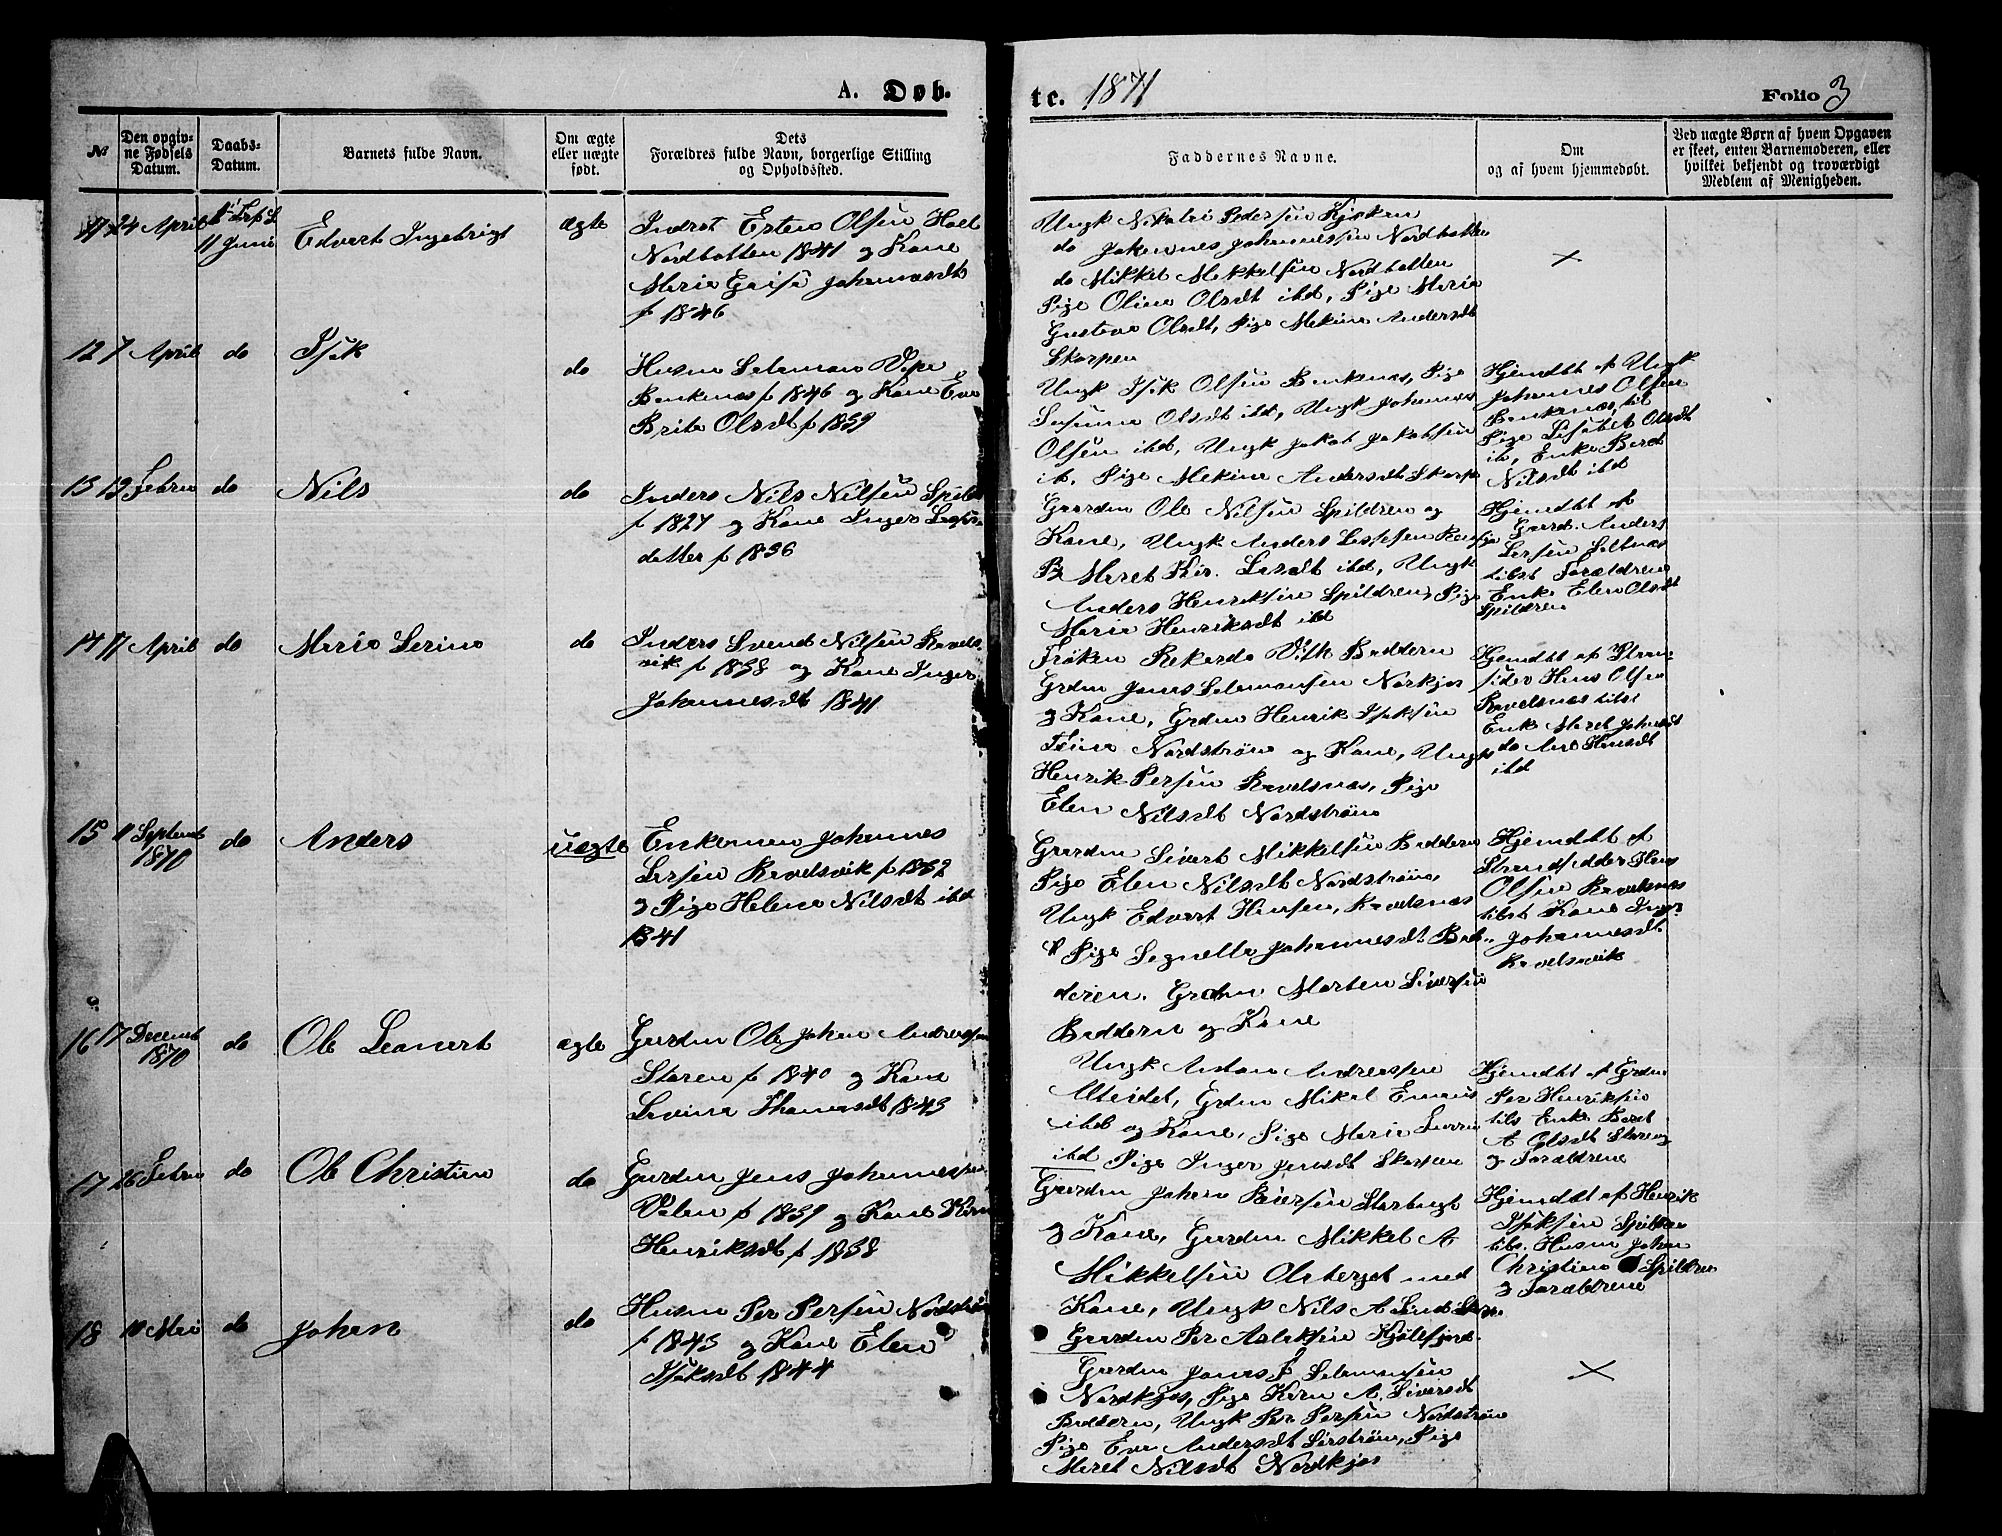 A. Døb.
te. 1871
Folio 3
№
Den opgiv-
ne Fødsels
Datum.
Daabs-
Datum.
Barnets fulde Navn.
Om ægte
eller uægte
født.
Dets
Forældres fulde Navn, borgerlige Stilling
og Opholdssted.
Faddernes Navne.
Om
og af hvem hjemmedøbt.
Ved uægte Børn af hvem Opgaven
er skeet, enten Barnemoderen, eller
hvilket bekjendt og troværdigt
Medlem af Menigheden.
11 24 April
11 Juni
Edvert Ingebrigt
ægte
Indrst Esten Olsen Hall
Nordbotten 1841 og Kone
Maria Johannesdt
f 1846
Ungk Nikolai Pedersen Kjøken
do Johannes Johannessen Nordbotten
do Mikkel Mekkelsen Nordbotten
Pige Oline Olsdt ibd, Pige Maria
Gustava Olsdt, Pige Mekine Andersdt
Skorpen
×
12 7 April do
Isak
do
Husm Salamon Vipe
Bankenæs f 1846 og Kone Eva
Brita Olsdt f 1839
Ungk Isak Olsen Bankenæs, Pige
Susanna Olsdt ibd, Ungk Johannes
Olsen ibd, Ungk Jakob Jakobsen
ib, Pige Mekine Andersdt Skorpe
Hjemdbt af Ungk
Johannes Olsen
Bankenæs, til
Pige Lisabet Olsdt
ib, Enke Berit
Nilsdt ibd
13 19 Febru do
Nils
do
Inders Nils Nilsen Spild
f 1827 og Kone Inger Lars
datter f 1836
Gaardm Ole Nilsen Spildren og
Kone, Ungk Anders
P. Meret Kir. Larsdt ibd, Ungk
Anders Henriksen Spildren, Pige
Maria Henriksdt ibd
Hjemdbt af
Gaard. Anders
Larsen
tilst Forældrene
Enke Elen Olsdt
Spildren
14 11 April do
Maria Larina
do
Inders Svend Nilsen Ravels
vik f 1838 og Kone Inger
Johannesdt 1841
Frøken Rekarda Vilk Badderen
Grdm Jonas Salamonsen Norkjos
og Kone, Grdm Henrik Isaksen
Nordstrøm og Kone, Ungk
Henrik Persen Ravelsnæs, Pige
Elen Nilsdt Nordstrøm
Hjemdbt af Stran-
sider Hans Olsen
Ravelsnæs tilst
Enke Marit Johansdt
do Ane Hansdt
ibd
15 11 Septemb
1870
do
Anders
uægte
Enkeman Johannes
Larsen Ravelsvik f 1832
og Pige Helena Nilsdt ibd
1841
Gaardm Sivert Mikkelsen Baddern
Pige Elen Nilsdt Nordstrøm,
Ungk Edvart Hansen, Ravelsnæs
Pige Johannesdt Bad-
deren, Grdm Morten Sivertsen
Baddern og Kone
Hjemdbt af
Strandsidder Hans
Olsen Ravelsnæs
tilst Kone Inger
Johannesdt
Ravelsvik
16 17 Decemb
1870
do
Ole Leonert
ægte
Gardm Ole Johan Andreassen
Storen f 1840 og Kone
Levina Thomasdt 1843
Ungk Anton Andreassen
Alteidet, Grdm Mikal
ibd og Kone, Pige Maria
ibd Pige Inger Jensdt Skorpen
Hjemdbt af Grdm
Per Henriksen
tils Enke Beret
A Olsdt
og Forældrene
17 26 Febru
do
Ole Christian
do
Gardm Jens Johannessen
Valen f 1839 og Kone Karn
Henriksdt f 1838
Gaardm Johan Storbugt
og Kone, Gaardm Mikkel A
Mikkelsen med
Kone, Ungk Nils A
Gaardm Per Aslaksen Kjølefjord
Hjemdbt af Henrik
Isaksen Spildren
tils. Husm Johan
Christian Spildren
og Forældrene
18 10 Mai do
Johan
do
Husm Per Persen Nordstrøm
f 1843 og Kone Elen
Isaksdt 1844
Gaardm Jonas Salamonsen
Nordkjos, Pige Karn A. Siversdt
Baddern, Ungk Per Persen Nordstrøm
Pige Eva Andersdt Sørstrøm, Pige
Maret Nilsdt Nordkjos
×